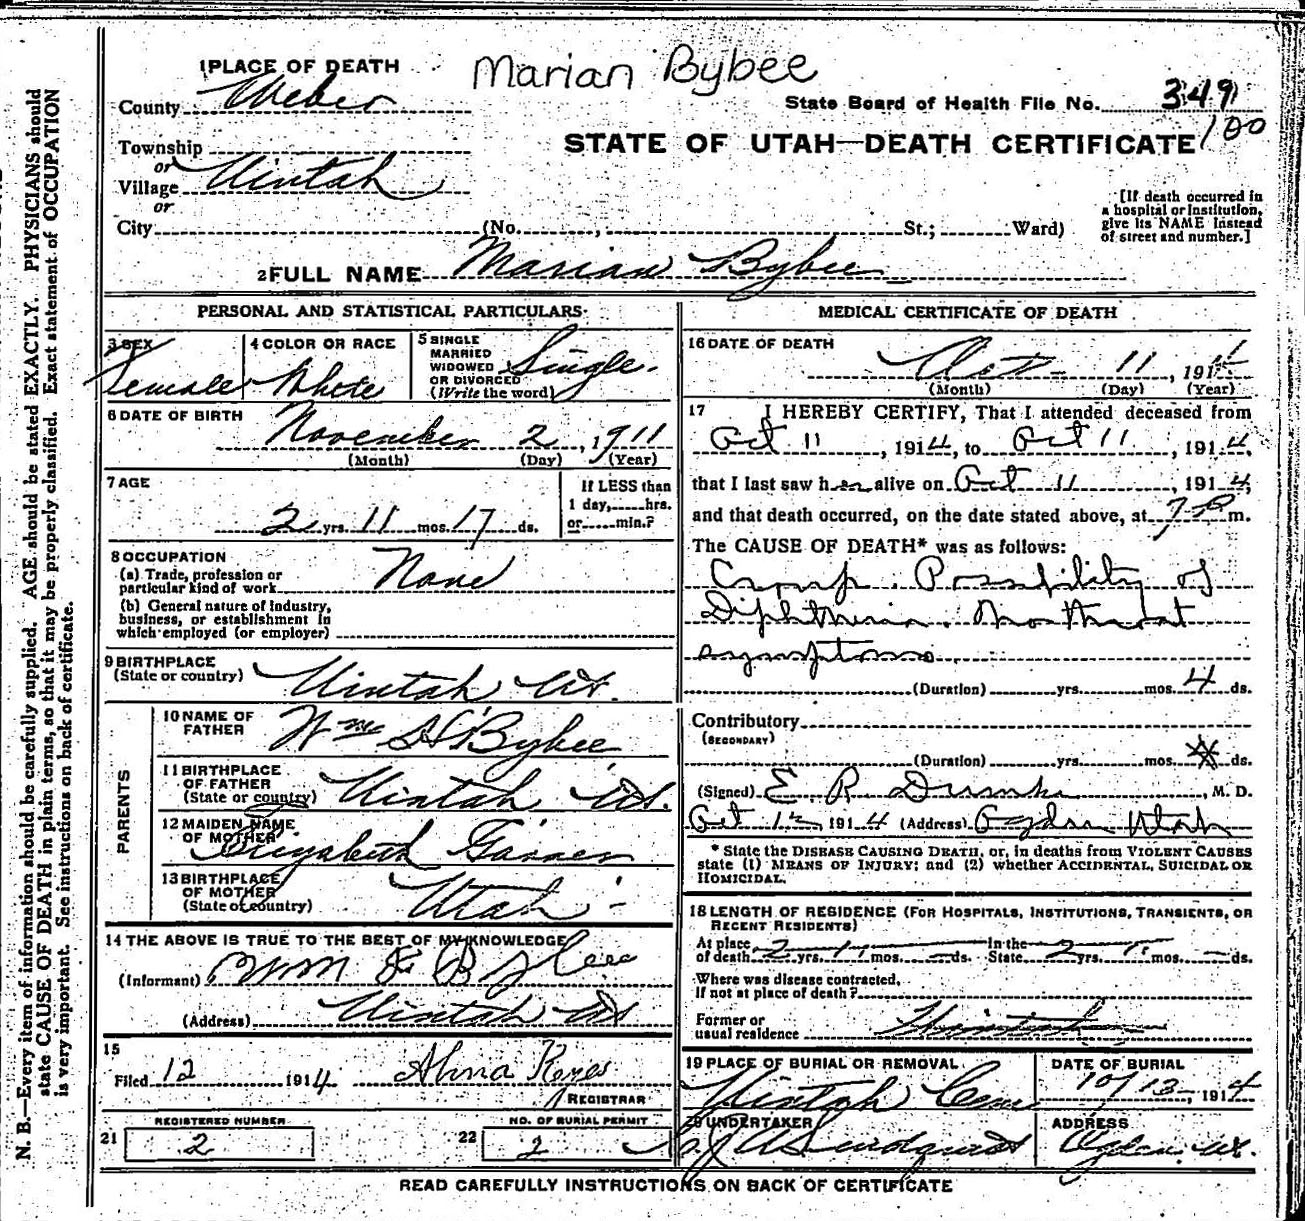 Marian Bybee
1 PLACE OF DEATH
County Weber
State Board of Health File No. 349
100
STATE OF UTAH—DEATH CERTIFICATE
Township
or
Village Uintah
or
City (No. , St.; Ward)
[If death occurred in
a hospital or institution,
give its NAME instead
of street and number.]
2 FULL NAME Marian Bybee
PERSONAL AND STATISTICAL PARTICULARS
3 SEX Female
4 COLOR OR RACE White
5 SINGLE
MARRIED
WIDOWED
OR DIVORCED
(Write the word) Single.
6 DATE OF BIRTH
November 2, 1911
(Month) (Day) (Year)
7 AGE
2 yrs. 11 mos. 17 ds.
If LESS than
1 day, hrs.
or min.?
8 OCCUPATION
(a) Trade, profession or
particular kind of work None
(b) General nature of Industry,
business, or establishment in
which employed (or employer)
9 BIRTHPLACE
(State or country) Uintah Ut.
PARENTS
10 NAME OF
FATHER Wm H Bybee
11 BIRTHPLACE
OF FATHER
(State or country) Uintah
12 MAIDEN NAME
OF MOTHER Elizabeth
13 BIRTHPLACE
OF MOTHER
(State of country) Utah -
14 THE ABOVE IS TRUE TO THE BEST OF MY KNOWLEDGE
(Informant) Bybee
(Address) Uintah
15
Filed 12 1914
REGISTRAR
REGISTERED NUMBER
21 2
NO. OF BURIAL PERMIT
22 2
MEDICAL CERTIFICATE OF DEATH
16 DATE OF DEATH
Oct - 11, 1914
(Month) (Day) (Year)
17 I HEREBY CERTIFY, That I attended deceased from
Oct 11, 1914, to Oct 11, 1914,
that I last saw her alive on Oct 11, 1914,
and that death occurred, on the date stated above, at 7 P m.
The CAUSE OF DEATH* was as follows:
Croup. Possibility of
Diphtheria. No throat
symptoms
(Duration) yrs. mos. 4 ds.
Contributory
(SECONDARY)
(Duration) yrs. mos. ds.
(Signed) E. R. , M. D.
Oct 12, 1914 (Address) Ogden Utah
* State the DISEASE CAUSING DEATH, or, in deaths from VIOLENT CAUSES
state (1) MEANS OF INJURY; and (2) whether ACCIDENTAL, SUICIDAL OR
HOMICIDAL.
18 LENGTH OF RESIDENCE (FOR HOSPITALS, INSTITUTIONS, TRANSIENTS, OR
RECENT RESIDENTS)
At place
of death 2 yrs. 11 mos. - ds. In the
State 2 yrs. 11 mos. - ds.
Where was disease contracted,
If not at place of death?
Former or
usual residence Uintah
19 PLACE OF BURIAL OR REMOVAL
Uintah Cem
DATE OF BURIAL
10/13, 1914
20 UNDERTAKER
ADDRESS
Ogden Ut.
READ CAREFULLY INSTRUCTIONS ON BACK OF CERTIFICATE
N. B.—Every item of information should be carefully supplied. AGE should be stated EXACTLY. PHYSICIANS should
state CAUSE OF DEATH in plain terms, so that it may be properly classified. Exact statement of OCCUPATION
is very important. See instructions on back of certificate.